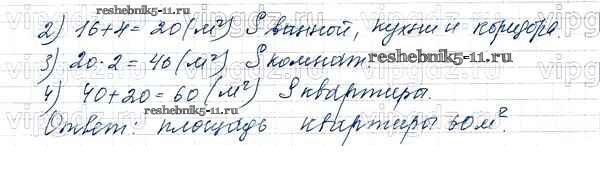 2) 16+4=20(м²) S ванной, кухни и коридора.
reshebnik5-11.ru
3) 20·2=40(м²) S комнат
reshebnik5-11.ru
4) 40+20=60(м²) S квартиры.
reshebnik5-11.ru
Ответ: площадь квартиры 60м².